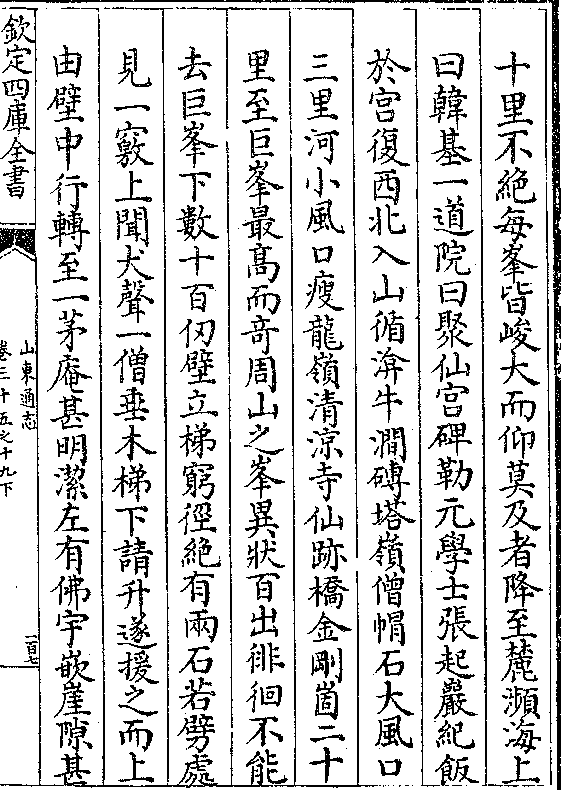 十里不絶每峯皆峻大而仰莫及者降至麓瀕海上
曰韓基一道院曰聚仙宫碑勒元學士張起巖紀飯
於宫復西北入山循渰牛澗磚塔嶺僧帽石大風口
三里河小風口瘦龍嶺清凉寺仙跡橋金剛崮二十
里至巨峯最高而竒周山之峯異狀百出徘徊不能
去巨峯下數十百仭壁立梯窮徑絶有兩石若劈處
見一竅上聞犬聲一僧垂木梯下請升遂援之而上
由壁中行轉至一茅庵甚明潔左有佛宇嵌崖隙甚
欽定四庫全書
山東通志
卷三十五之十九下
一百七